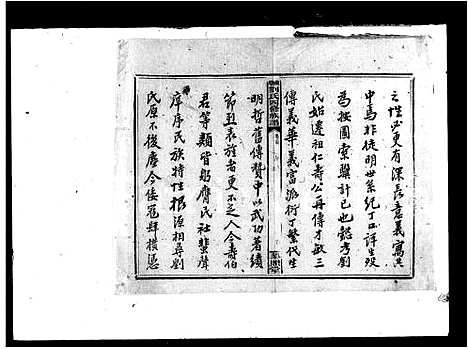 之性必更有深長意義寓其
中焉非徒明世系紀丁口詳生歿
為按圖索驥計已也懿考劉
氏始遷祖仁壽公再傳才敏三
傳義華義富派衍丁繁代生
劉氏四修族譜
明哲舊傳贊中以武功著績
節烈表旌者更不乏人今壽伯
君等類皆躬膺民社蜚聲
庠序氏族特性根源相尋劉
氏原不後塵今倭寇肆横憑